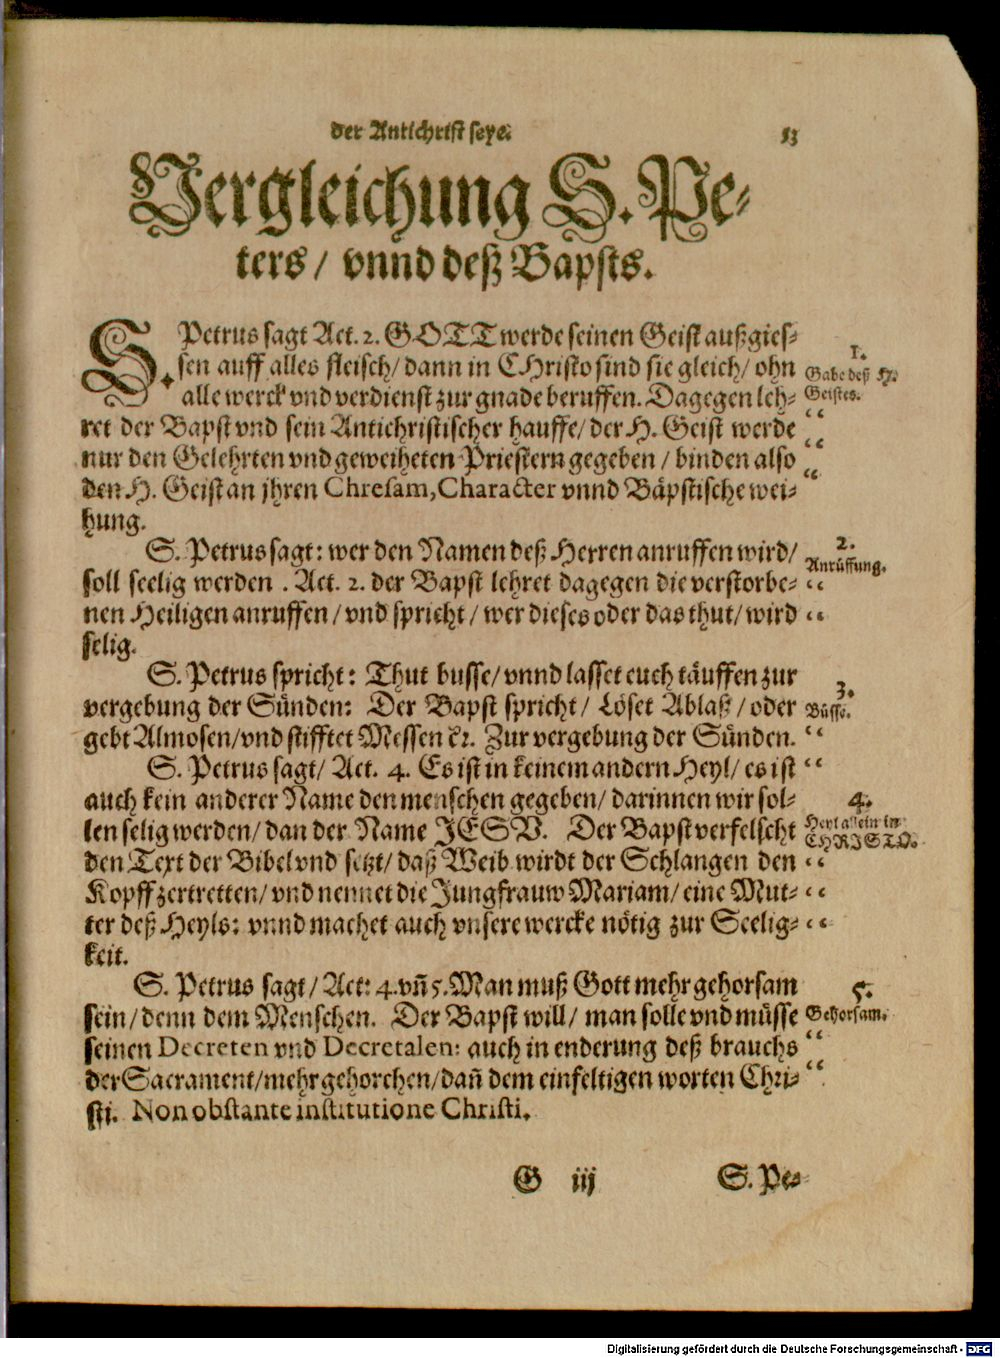 der Antichrist seye. 53
Vergleichung S. Pe-
ters / vnnd deß Bapsts.
S. Petrus sagt Act. 2. GOTT werde seinen Geist außgies-
sen auff alles fleisch / dann in CHristo sind sie gleich / ohn
alle werck vnd verdienst zur gnade beruffen. Dagegen leh-
ret der Bapst vnd sein Antichristischer hauffe / der H. Geist werde
nur den Gelehrten vnd geweiheten Priestern gegeben / binden also
den H. Geist an jhren Chresam, Character vnnd Bäpstische wei-
hung.
1.
Gabe deß H.
Geistes.
S. Petrus sagt: wer den Namen deß Herren anruffen wird /
soll seelig werden . Act. 2. der Bapst lehret dagegen die verstorbe-
nen Heiligen anruffen / vnd spricht / wer dieses oder das thut / wird
selig.
2.
Anrüffung.
S. Petrus spricht: Thut busse / vnnd lasset euch täuffen zur
vergebung der Sünden: Der Bapst spricht / Löset Ablaß / oder
gebt Almosen / vnd stifftet Messen ꝛc. Zur vergebung der Sünden.
3.
Büsse.
S. Petrus sagt / Act. 4. Es ist in keinem andern Heyl / es ist
auch kein anderer Name den menschen gegeben / darinnen wir sol-
len selig werden / dan der Name JESV. Der Bapst verfelscht
den Text der Bibel vnd setzt / daß Weib wirdt der Schlangen den
Kopff zertretten / vnd nennet die Jungfrauw Mariam / eine Mut-
ter deß Heyls: vnnd machet auch vnsere wercke nötig zur Seelig-
keit.
4.
Heyl allein in
CHRISTO.
S. Petrus sagt / Act: 4. vñ 5. Man muß Gott mehr gehorsam
sein / denn dem Menschen. Der Bapst will / man solle vnd müsse
seinen Decreten vnd Decretalen: auch in enderung deß brauchs
der Sacrament / mehr gehorchen / dañ dem einfeltigen worten Chri-
sti. Non obstante institutione Christi.
5.
Gehorsam.
G iij S. Pe-
Digitalisierung gefördert durch die Deutsche Forschungsgemeinschaft - DFG